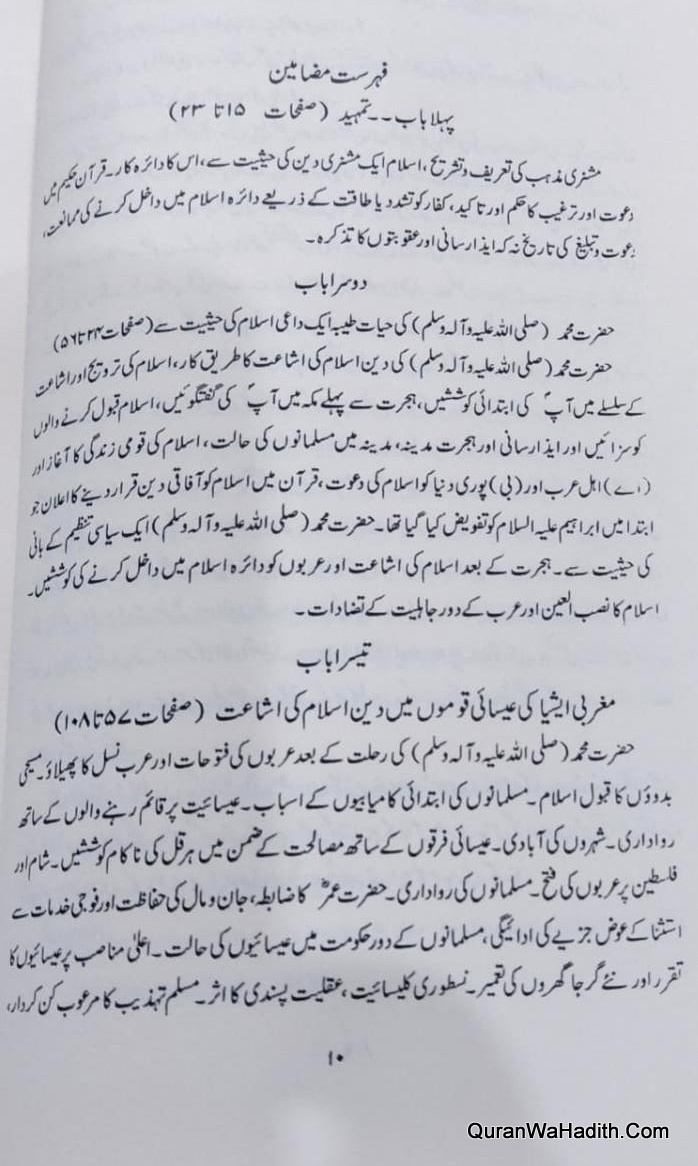 فہرست مضامین
پہلا باب۔۔ تمہید (صفحات ۱۵ تا ۲۳)
مشنری مذہب کی تعریف و تشریح، اسلام ایک مشنری دین کی حیثیت سے، اس کا دائرہ کار۔ قرآن حکیم میں
دعوت اور ترغیب کا حکم اور تاکید، کفار کو تشدد یا طاقت کے ذریعے دائرہ اسلام میں داخل کرنے کی ممانعت،
دعوت و تبلیغ کی تاریخ نہ کہ ایذا رسانی اور عقوبتوں کا تذکرہ۔
دوسرا باب
حضرت محمد (صلی اللہ علیہ و آلہ وسلم) کی حیات طیبہ ایک داعی اسلام کی حیثیت سے (صفحات ۲۴ تا ۵۶)
حضرت محمد (صلی اللہ علیہ و آلہ وسلم) کی دین اسلام کی اشاعت کا طریق کار، اسلام کی ترویج اور اشاعت
کے سلسلے میں آپؐ کی ابتدائی کوششیں، ہجرت سے پہلے مکہ میں آپؐ کی گفتگوئیں، اسلام قبول کرنے والوں
کو سزائیں اور ایذا رسانی اور ہجرت مدینہ، مدینہ میں مسلمانوں کی حالت، اسلام کی قومی زندگی کا آغاز اور
(اے) اہل عرب اور (بی) پوری دنیا کو اسلام کی دعوت، قرآن میں اسلام کو آفاقی دین قرار دینے کا اعلان جو
ابتدا میں ابراہیم علیہ السلام کو تفویض کیا گیا تھا۔ حضرت محمد (صلی اللہ علیہ و آلہ وسلم) ایک سیاسی تنظیم کے بانی
کی حیثیت سے۔ ہجرت کے بعد اسلام کی اشاعت اور عربوں کو دائرہ اسلام میں داخل کرنے کی کوششیں۔
اسلام کا نصب العین اور عرب کے دور جاہلیت کے تضادات۔
تیسرا باب
مغربی ایشیا کی عیسائی قوموں میں دین اسلام کی اشاعت (صفحات ۵۷ تا ۱۰۸)
حضرت محمد (صلی اللہ علیہ و آلہ وسلم) کی رحلت کے بعد عربوں کی فتوحات اور عرب نسل کا پھیلاؤ۔ مسیحی
بدوؤں کا قبول اسلام۔ مسلمانوں کی ابتدائی کامیابیوں کے اسباب۔ عیسائیت پر قائم رہنے والوں کے ساتھ
رواداری۔ شہروں کی آبادی۔ عیسائی فرقوں کے ساتھ مصالحت کے ضمن میں ہرقل کی ناکام کوششیں۔ شام اور
فلسطین پر عربوں کی فتح۔ مسلمانوں کی رواداری۔ حضرت عمرؓ کا ضابطہ، جان و مال کی حفاظت اور فوجی خدمات سے
استثنا کے عوض جزیے کی ادائیگی، مسلمانوں کے دور حکومت میں عیسائیوں کی حالت۔ اعلیٰ مناصب پر عیسائیوں کا
تقرر اور نئے گرجا گھروں کی تعمیر۔ نسطوری کلیسائیت، عقلیت پسندی کا اثر۔ مسلم تہذیب کا مرعوب کن کردار،
۱۰
QuranWaHadith.Com